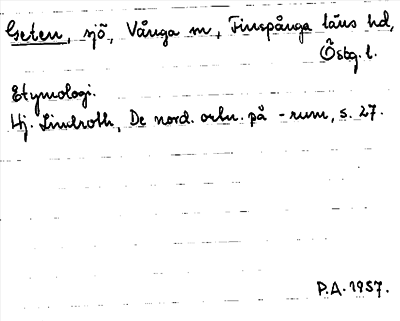 Geten, sjö, Vånga sn, Finspånga läns hd,
Östg. l.
Etymologi.
Hj. Lindroth, De nord. ortn. på -rum, s. 27.
P.A. 1957.